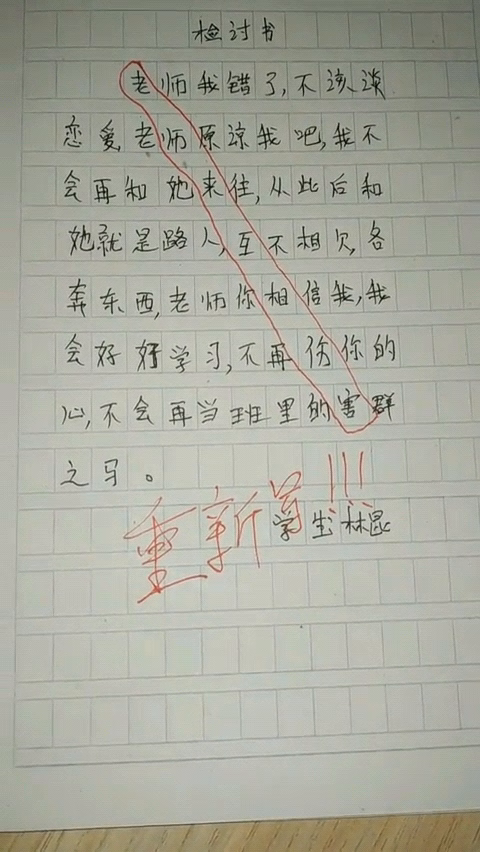 检讨书
老师我错了,不该谈
恋爱,老师原谅我吧,我不
会再和她来往,从此后和
她就是路人,互不相欠,各
奔东西,老师你相信我,我
会好好学习,不再伤你的
心,不会再当班里的害群
之马。
重新写!!!
学生林昆